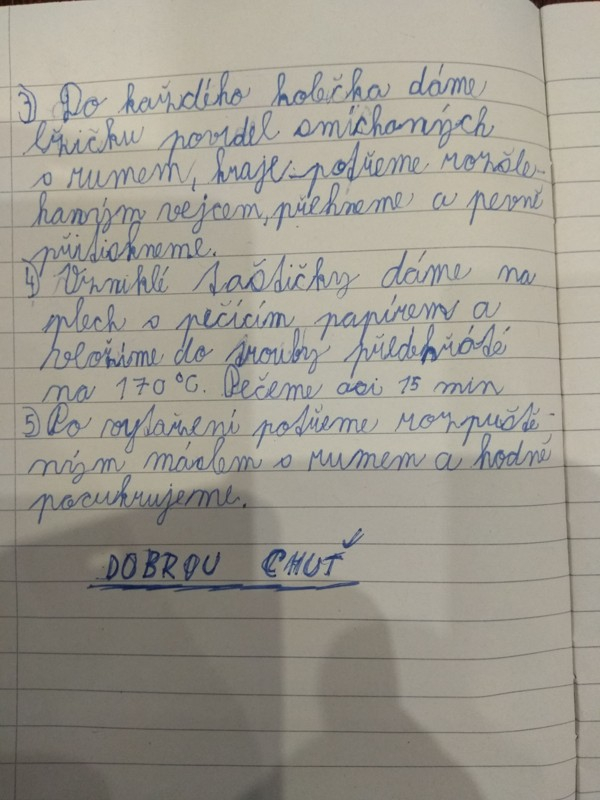 3) Do každého kolečka dáme
lžičku povidel smíchaných
s rumem, kraje potřeme rozšle-
haným vejcem, přehneme a pevně
přitiskneme.
4) Vzniklé taštičky dáme na
plech s pečícím papírem a
vložíme do trouby předehřáté
na 170 °C. Pečeme asi 15 min
5) Po vytažení potřeme rozpuště-
ným máslem s rumem a hodně
pocukrujeme.
DOBROU CHUŤ